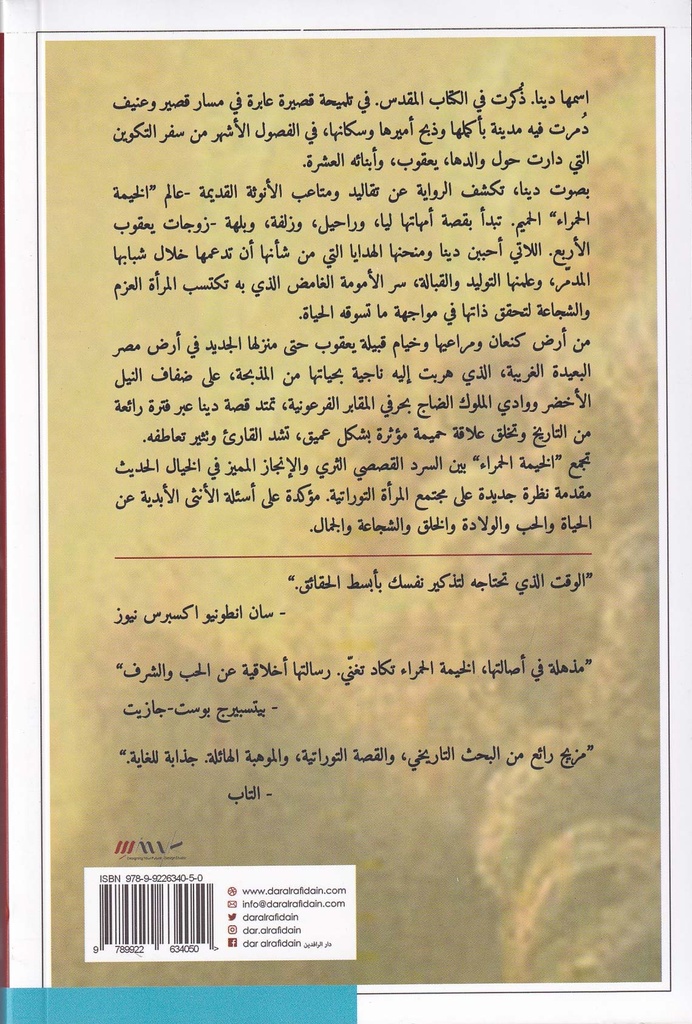 اسمها دينا. ذُكرت في الكتاب المقدس. في تلميحة قصيرة عابرة في مسار قصير وعنيف
دُمرت فيه مدينة بأكملها وذبح أميرها وسكانها، في الفصول الأشهر من سفر التكوين
التي دارت حول والدها، يعقوب، وأبنائه العشرة.
بصوت دينا، تكشف الرواية عن تقاليد ومتاعب الأنوثة القديمة -عالم "الخيمة
الحمراء" الحميم. تبدأ بقصة أمهاتها ليا، وراحيل، وزلفة، وبلهة -زوجات يعقوب
الأربع. اللاتي أحببن دينا ومنحنها الهدايا التي من شأنها أن تدعمها خلال شبابها
المدمّر، وعلمنها التوليد والقبالة، سر الأمومة الغامض الذي به تكتسب المرأة العزم
والشجاعة لتحقق ذاتها في مواجهة ما تسوقه الحياة.
من أرض كنعان ومراعيها وخيام قبيلة يعقوب حتى منزلها الجديد في أرض مصر
البعيدة الغريبة، الذي هربت إليه ناجية بحياتها من المذبحة، على ضفاف النيل
الأخضر ووادي الملوك الضاج بحرفي المقابر الفرعونية، تمتد قصة دينا عبر فترة رائعة
من التاريخ وتخلق علاقة حميمة مؤثرة بشكل عميق، تشد القارئ وتثير تعاطفه.
تجمع "الخيمة الحمراء" بين السرد القصصي الثري والإنجاز المميز في الخيال الحديث
مقدمة نظرة جديدة على مجتمع المرأة التوراتية. مؤكدة على أسئلة الأنثى الأبدية عن
الحياة والحب والولادة والخلق والشجاعة والجمال.
"الوقت الذي تحتاجه لتذكير نفسك بأبسط الحقائق."
- سان انطونيو اكسبرس نيوز
"مذهلة في أصالتها، الخيمة الحمراء تكاد تغنّي. رسالتها أخلاقية عن الحب والشرف"
- بيتسبيرج بوست-جازيت
"مزيج رائع من البحث التاريخي، والقصة التوراتية، والموهبة الهائلة. جذابة للغاية."
- التاب
ISBN 978-9-9226340-5-0
9 789922 634050 >
www.daralrafidain.com
info@daralrafidain.com
daralrafidain
dar.alrafidain
dar alrafidain دار الرافدين